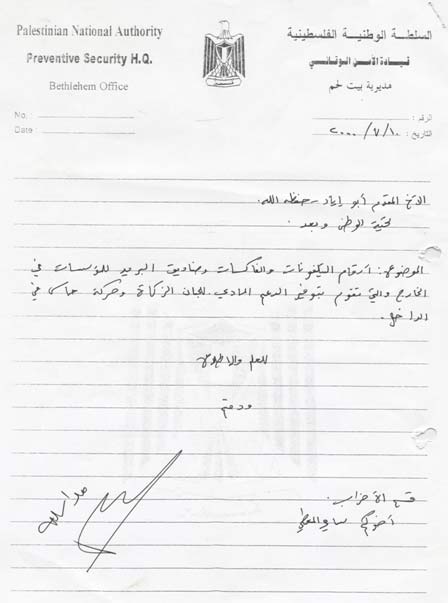 Palestinian National Authority
Preventive Security H.Q.
Bethlehem Office
No.
Date
السلطة الوطنية الفلسطينية
قيادة الأمن الوقائي
مديرية بيت لحم
الرقم :
التاريخ : ٢٠٠٠/٧/١٠
الأخ المقدم أبو إياد حفظه الله.
تحية الوطن وبعد.
الموضوع: أرقام التلفونات والفاكسات وصناديق البريد للمؤسسات في
الخارج والتي تقوم بتوفير الدعم المادي للجان الزكاة وحركة حماس في
الداخل.
للعلم والاطلاع
ودمتم
قسم الأحزاب.
أخوكم